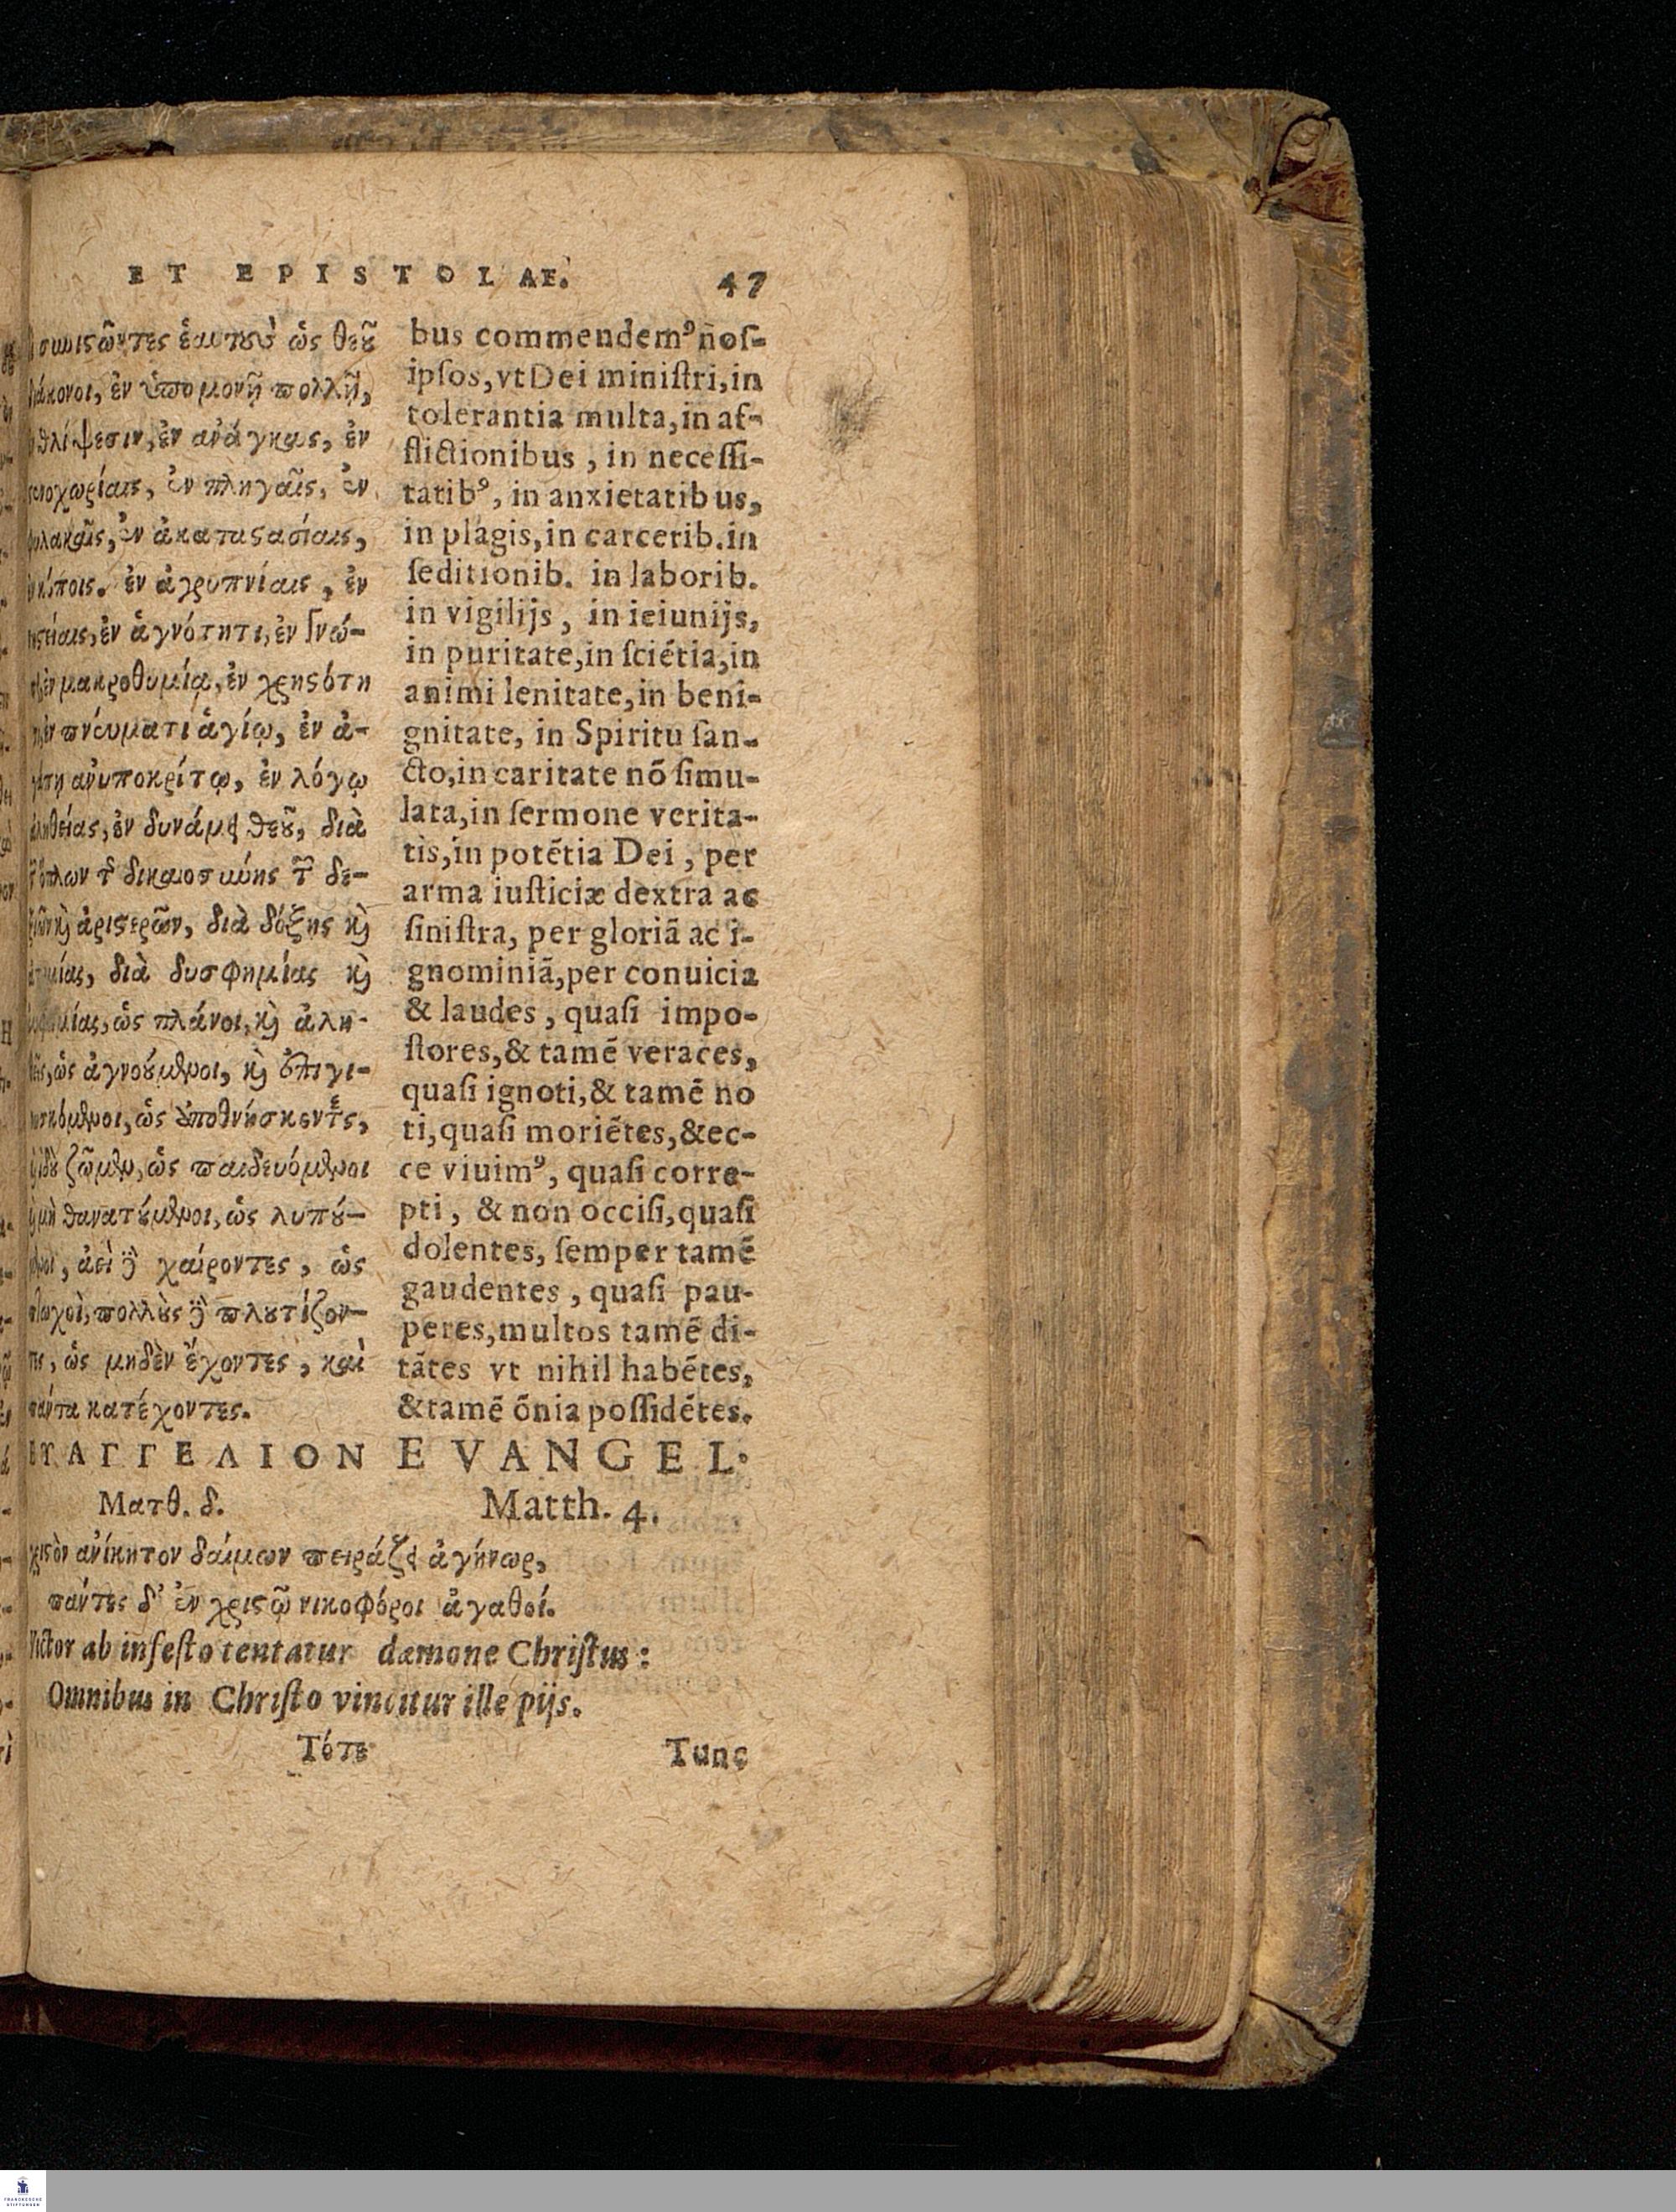 ET EPISTOLAE. 47
συνιϛῶντες ἑαυτοὺ ὡς θεοῦ
διάκονοι, ἐν ὑπομονῇ πολλῇ,
θλίψεσιν, ἐν ἀνάγκαις, ἐν
στενοχωρίαις, ἐν πληγαῖς, ἐν
φυλακαῖς, ἐν ἀκαταϛασίαις,
κόποις. ἐν ἀγρυπνίαις, ἐν
νηϛείαις, ἐν ἁγνότητι, ἐν γνώ-
ἐν μακροθυμίᾳ, ἐν χρηϛότη
ἐν πνεύματι ἁγίῳ, ἐν ἀ-
γάπῃ ἀνυποκρίτῳ, ἐν λόγῳ
ἀληθείας, ἐν δυνάμει θεοῦ, διὰ
ὅπλων τῆς δικαιοσύνης τῶν δε-
ξιῶν καὶ ἀριϛερῶν, διὰ δόξης καὶ
ἀτιμίας, διὰ δυσφημίας καὶ
εὐφημίας, ὡς πλάνοι, καὶ ἀλη-
θεῖς, ὡς ἀγνοούμενοι, καὶ ἐπιγι-
νωσκόμενοι, ὡς ἀποθνήσκοντες,
ἰδοὺ ζῶμεν, ὡς παιδευόμενοι
μὴ θανατούμενοι, ὡς λυπού-
μενοι, ἀεὶ δὲ χαίροντες, ὡς
πτωχοὶ, πολλοὺς δὲ πλουτίζον-
τες, ὡς μηδὲν ἔχοντες, καὶ
πάντα κατέχοντες.
bus commendemꝰ nos-
ipſos, vt Dei miniſtri, in
tolerantia multa, in af-
flictionibus, in neceſſi-
tatibꝰ, in anxietatibus,
in plagis, in carcerib. in
ſeditionib. in laborib.
in vigilijs, in ieiunijs,
in puritate, in ſciētia, in
animi lenitate, in beni-
gnitate, in Spiritu ſan-
cto, in caritate nō ſimu-
lata, in ſermone verita-
tis, in potētia Dei, per
arma iuſticiæ dextra ac
ſiniſtra, per gloriā ac i-
gnominiā, per conuicia
& laudes, quaſi impo-
ſtores, & tamē veraces,
quaſi ignoti, & tamē no
ti, quaſi moriētes, & ec-
ce viuimꝰ, quaſi corre-
pti, & non occiſi, quaſi
dolentes, ſemper tamē
gaudentes, quaſi pau-
peres, multos tamē di-
tātes vt nihil habētes,
& tamē ōnia poſſidētes.
ΕΥΑΓΓΕΛΙΟΝ
Ματθ. δ.
EVANGEL.
Matth. 4.
χριϛὸν ἀνίκητον δαίμων πειράζει ἀγήνωρ,
πάντες δ' ἐν χριϛῷ νικοφόροι ἀγαθοί.
Victor ab infeſto tentatur dæmone Chriſtus:
Omnibus in Chriſto vincitur ille pijs.
Τότε
Tunc
FRANCKESCHE
STIFTUNGEN